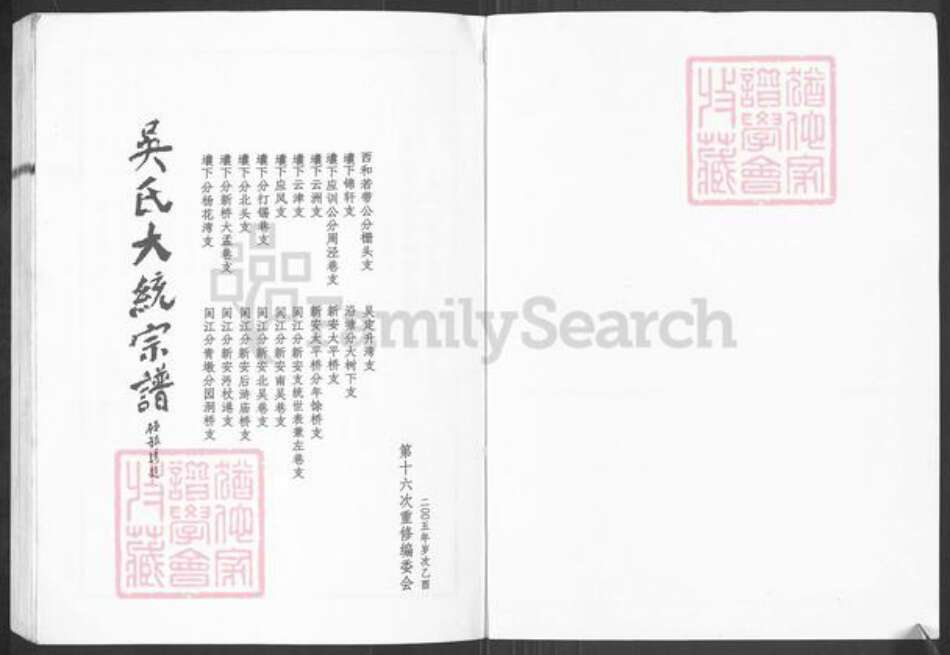 二〇〇五年岁次乙酉
第十六次重修编委会
西和若带公分栅头支
塘下锦轩支
塘下应训公分周泾巷支
塘下云洲支
塘下云津支
塘下应凤支
塘下分打锡巷支
塘下分北头支
塘下分新桥大孟巷支
塘下分杨花湾支
吴定升湾支
沿塘分大树下支
新安太平桥支
新安太平桥分年馀桥支
闾江分新安支统世表兼左巷支
闾江分新安南吴巷支
闾江分新安北吴巷支
闾江分新安后浒庙桥支
闾江分新安沔杖港支
闾江分青墩分园洞桥支
吴氏大統宗譜
譜學會
FamilySearch